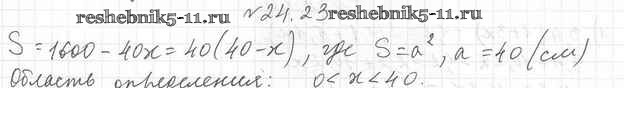 reshebnik5-11.ru №24.23 reshebnik5-11.ru
S = 1600 - 40x = 40(40-x), где S=a², a = 40 (см)
Область определения: 0 < x < 40.